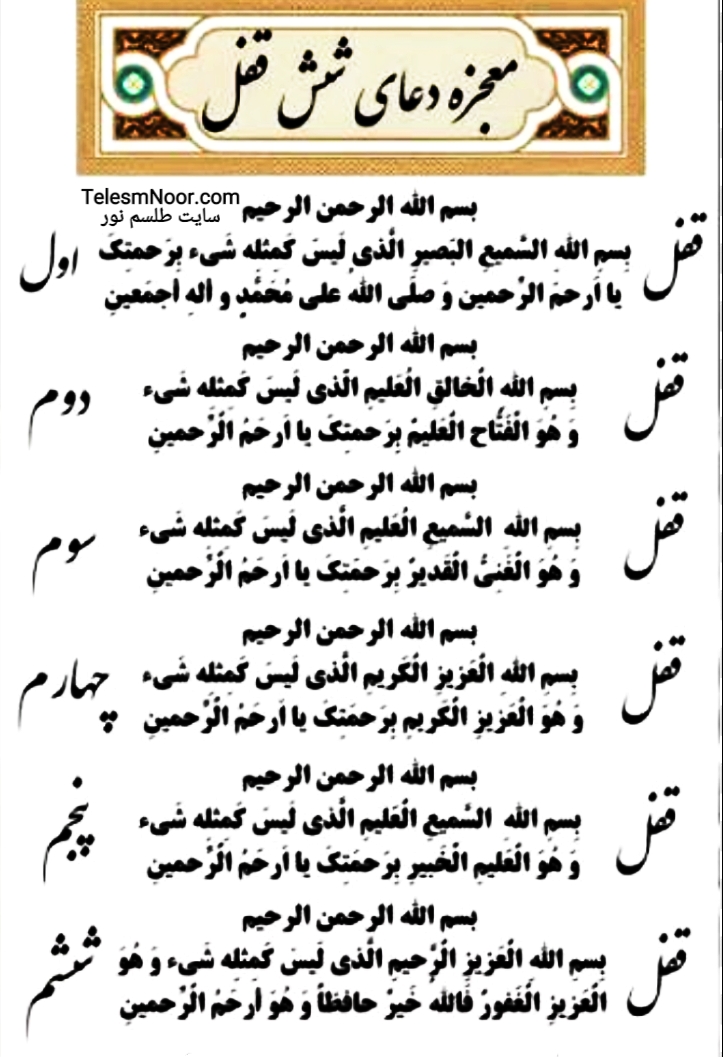 معجزه دعای شش قفل
TelesmNoor.com
سایت طلسم نور
بسم الله الرحمن الرحیم
قفل اول
بِسمِ اللهِ السَّمیعِ البَصیرِ الَّذی لَیسَ کَمِثلِه شَیء بِرَحمتِکَ
یا اَرحمَ الرّحمین وَ صلَّی الله علی مُحَمَّدٍ و اَلهِ اَجمَعینِ
بسم الله الرحمن الرحیم
قفل دوم
بِسمِ الله الْخالقِ الْعَلیمِ الَّذی لَیسَ کَمثله شَیء
وَ هُوَ الْفَتُّاح الْعَلیمُ بِرَحمتِکَ یا اَرحَمُ الْرَّحمینِ
بسم الله الرحمن الرحیم
قفل سوم
بِسمِ الله السَّمیعِ الْعَلیمِ الَّذی لَیسَ کَمثله شَیء
وَ هُوَ الْغَنِیُّ الْقَدیرُ بِرَحمَتِکَ یا اَرحَمُ الْرَّحمینِ
بسم الله الرحمن الرحیم
قفل چهارم
بِسمِ اللهِ الْعَزیزِ الْکَریمِ الَّذی لَیسَ کَمثله شَیء
وَ هُوَ الْعَزیزِ الْکَریمِ بِرَحمَتِکَ یا اَرحَمُ الْرَّحمینِ
بسم الله الرحمن الرحیم
قفل پنجم
بِسمِ الله السَّمیعِ الْعَلیمِ الَّذی لَیسَ کَمثله شَیء
وَ هُوَ الْعَلیمِ الْخَبیرِ بِرَحمَتِکَ یا اَرحَمُ الْرَّحمینِ
بسم الله الرحمن الرحیم
قفل ششم
بِسمِ الله الْعَزیزِ الْرَّحیمِ الَّذی لَیسَ کَمثلِه شَیء وَ هُوَ
الْعَزیزِ الْغَفورُ فَاللهُ خَیرُ حافظاً وَ هُوَ اَرحَمُ الْرَّحمینِ